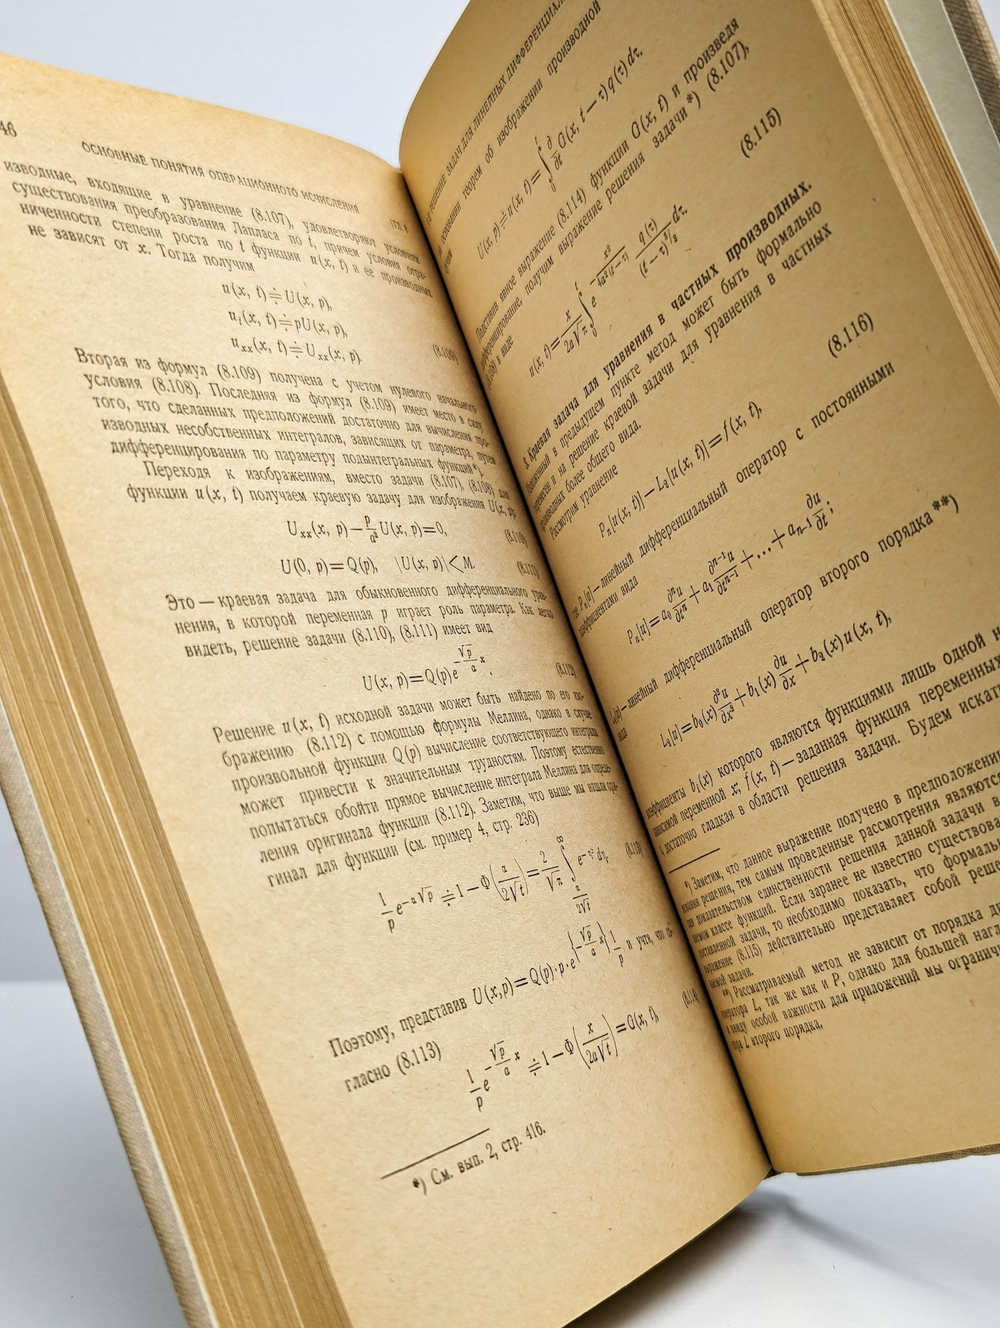 46
ОСНОВНЫЕ ПОНЯТИЯ ОПЕРАЦИОННОГО ИСЧИСЛЕНИЯ
изводные, входящие в уравнение (8.107), удовлетворяют условиям
существования преобразования Лапласа по t, причем условия огра-
ниченности степени роста по t функции u(x, t) и ее производных
не зависят от x. Тогда получим
u(x, t)≑U(x, p),
u_t(x, t)≑pU(x, p),
u_xx(x, t)≑U_xx(x, p). (8.109)
Вторая из формул (8.109) получена с учетом нулевого начального
условия (8.108). Последняя из формул (8.109) имеет место в силу
того, что сделанных предположений достаточно для вычисления про-
изводных несобственных интегралов, зависящих от параметра, путем
дифференцирования по параметру подынтегральных функций*).
Переходя к изображениям, вместо задачи (8.107), (8.108) для
функции u(x, t) получаем краевую задачу для изображения U(x, p)
U_xx(x, p) — p/a² U(x, p)=0, (8.110)
U(0, p)=Q(p), |U(x, p)|<M. (8.111)
Это — краевая задача для обыкновенного дифференциального урав-
нения, в которой переменная p играет роль параметра. Как легко
видеть, решение задачи (8.110), (8.111) имеет вид
U(x, p)=Q(p)e^{−(√p/a)x}. (8.112)
Решение u(x, t) исходной задачи может быть найдено по его изо-
бражению (8.112) с помощью формулы Меллина, однако в случае
произвольной функции Q(p) вычисление соответствующего интеграла
может привести к значительным трудностям. Поэтому естественно
попытаться обойти прямое вычисление интеграла Меллина для опреде-
ления оригинала функции (8.112). Заметим, что выше мы нашли ори-
гинал для функции (см. пример 4, стр. 236)
1/p e^{−α√p} ≑ 1 − Φ(α/2√t) = 2/√π ∫_{α/2√t}^{∞} e^{−η²} dη, (8.113)
Поэтому, представив U(x,p)=Q(p)·p·e^{−(√p/a)x} 1/p и учтя, что со-
гласно (8.113)
1/p e^{−(√p/a)x} ≑ 1 − Φ(x/2a√t) = G(x, t), (8.114)
*) См. вып. 2, стр. 416.
ЗАДАЧ ДЛЯ ЛИНЕЙНЫХ ДИФФЕРЕНЦИАЛ
теорем об изображении производной
U(x, p)≑u(x, t)=∫_0^t ∂/∂t G(x, t−τ) q(τ) dτ.
явное выражение (8.114) функции G(x, t) и произведя
дифференцирование, получим выражение решения задачи*) (8.107),
в виде
u(x, t)= x/2a√π ∫_0^t e^{−x²/4a²(t−τ)} q(τ)/(t−τ)^{3/2} dτ. (8.115)
Краевая задача для уравнения в частных производных.
в предыдущем пункте метод может быть формально
и на решение краевой задачи для уравнения в частных
более общего вида.
Рассмотрим уравнение
P_n[u(x, t)]−L_2[u(x, t)]=f(x, t), (8.116)
где P_n[u]—линейный дифференциальный оператор с постоянными
коэффициентами вида
P_n[u]=a_0 ∂ⁿu/∂tⁿ+a_1 ∂ⁿ⁻¹u/∂tⁿ⁻¹+…+a_{n−1} ∂u/∂t;
—линейный дифференциальный оператор второго порядка**)
вида
L_2[u]=b_0(x) ∂²u/∂x²+b_1(x) ∂u/∂x+b_2(x) u(x, t),
коэффициенты b_i(x) которого являются функциями лишь одной
зависимой переменной x, f(x, t)—заданная функция переменных
достаточно гладкая в области решения задачи. Будем искать
*) Заметим, что данное выражение получено в предположении
решения, тем самым проведенные рассмотрения являются
доказательством единственности решения данной задачи в
классе функций. Если заранее не известно существова
поставленной задачи, то необходимо показать, что формаль
выражение (8.115) действительно представляет собой реше
задачи.
**) Рассматриваемый метод не зависит от порядка ди
оператора L, так же как и P, однако для большей нагл
в виду особой важности для приложений мы ограничи
L второго порядка,